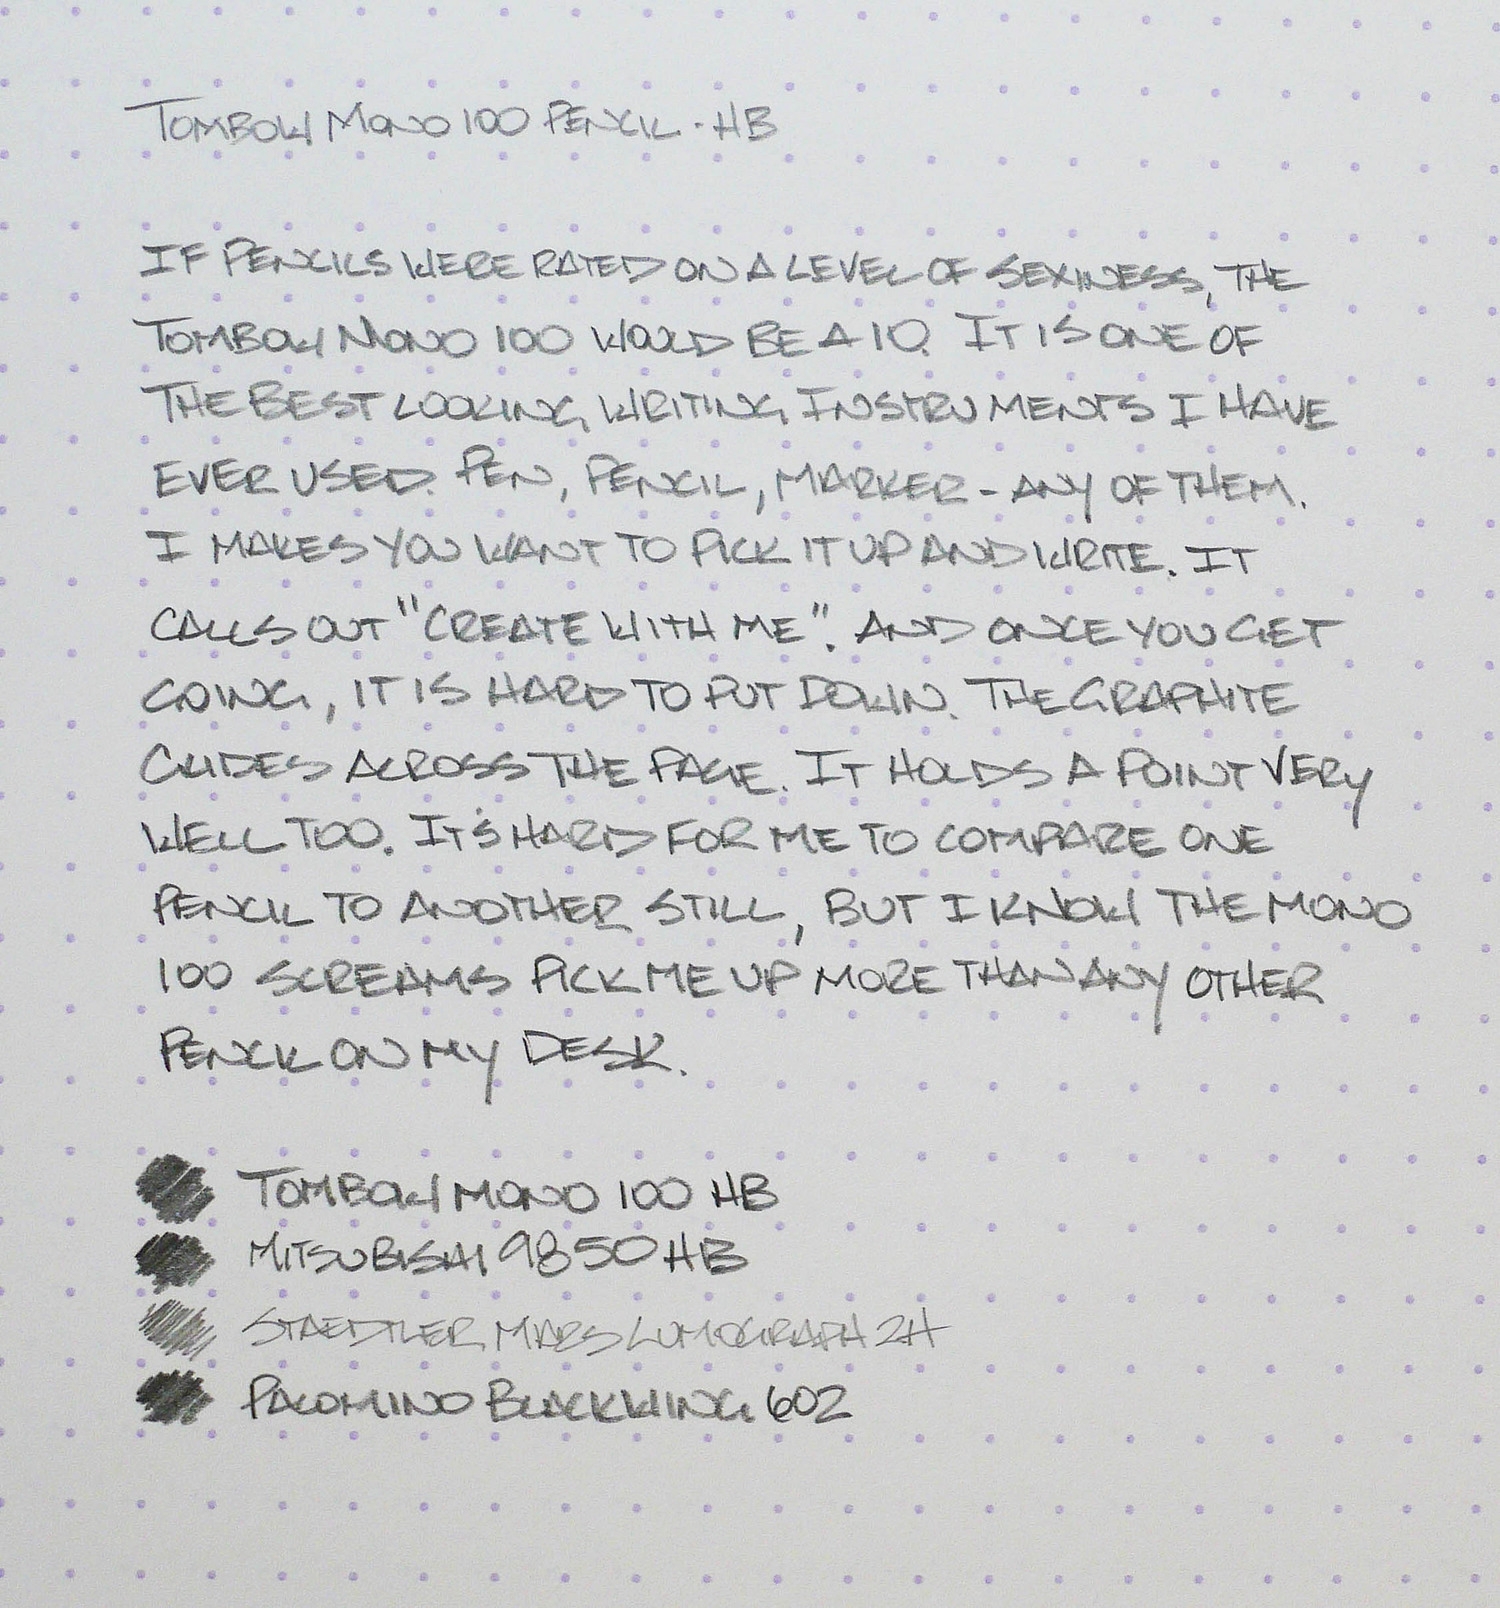 TOMBOW MONO 100 PENCIL - HB
IF PENCILS WERE RATED ON A LEVEL OF SEXINESS, THE
TOMBOW MONO 100 WOULD BE A 10. IT IS ONE OF
THE BEST LOOKING WRITING INSTRUMENTS I HAVE
EVER USED. PEN, PENCIL, MARKER - ANY OF THEM.
I MAKES YOU WANT TO PICK IT UP AND WRITE. IT
CALLS OUT "CREATE WITH ME". AND ONCE YOU GET
GOING, IT IS HARD TO PUT DOWN. THE GRAPHITE
GLIDES ACROSS THE PAGE. IT HOLDS A POINT VERY
WELL TOO. IT'S HARD FOR ME TO COMPARE ONE
PENCIL TO ANOTHER STILL, BUT I KNOW THE MONO
100 SCREAMS PICK ME UP MORE THAN ANY OTHER
PENCIL ON MY DESK.
TOMBOW MONO 100 HB
MITSUBISHI 9850 HB
STAEDTLER MARS LUMOGRAPH 2H
PALOMINO BLACKWING 602